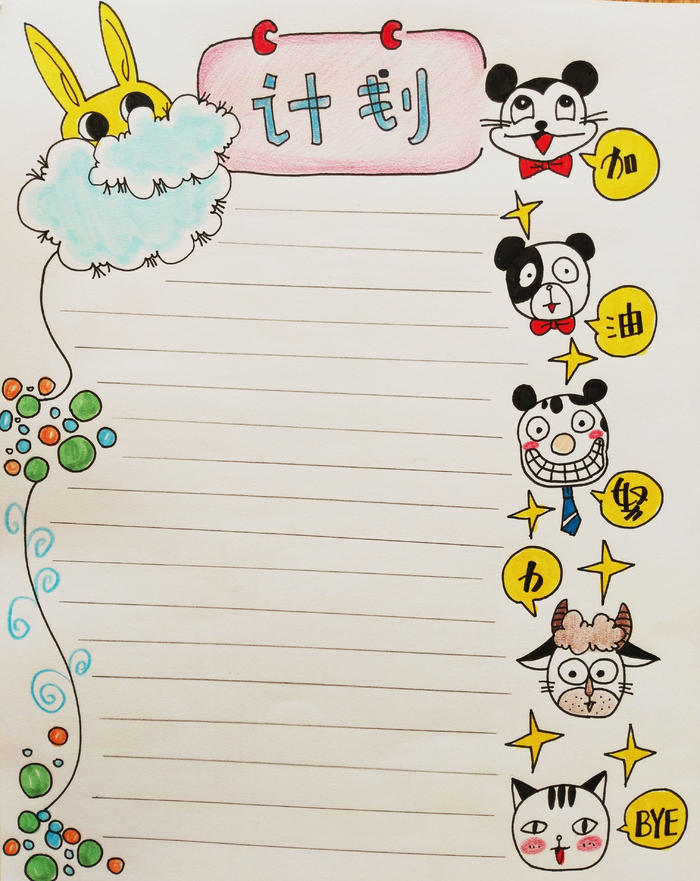 计划
加
油
努
力
BYE